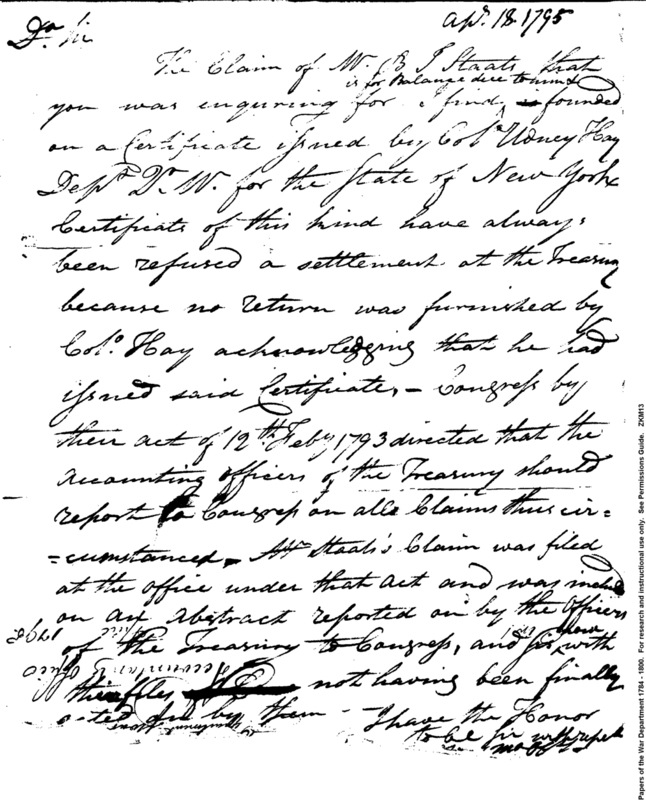 Apl. 18. 1795
Dr. Sir
The Claim of Mr. B J Staats that
is for Balance due to him &
you was enquiring for I find, founded
on a Certificate issued by Colo. Udney Hay
Depy. Qr. M. for the State of New York
Certificates of this kind have always
been refused a settlement at the Treasury
because no return was furnished by
Colo. Hay acknowledging that he had
issued said Certificates, – Congress by
their act of 12th. Feby 1793 directed that the
Accounting officers of the Treasury should
report to Congress on all Claims thus cir=
=cumstanced. Mr Staats's Claim was filed
at the office under that act and was includ
on an Abstract reported on by the Officers
of the Treasury to Congress, and is now with
their files not having been finally
acted on by them – I have the Honor
to be Sir with respt
Papers of the War Department 1784 - 1800. For research and instructional use only. See Permissions Guide. ZKM13